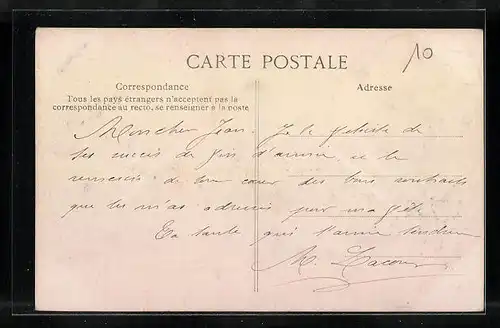 10
CARTE POSTALE
Correspondance
Tous les pays étrangers n'acceptent pas la
correspondance au recto, se renseigner à la poste
Adresse
Mon cher Jean. Je te félicite de
tes succès de fin d'année, et te
remercie de tout cœur des bons souhaits
que tu m'as adressés pour ma fête
Ta tante qui t'aime tendrement
M. Lacour